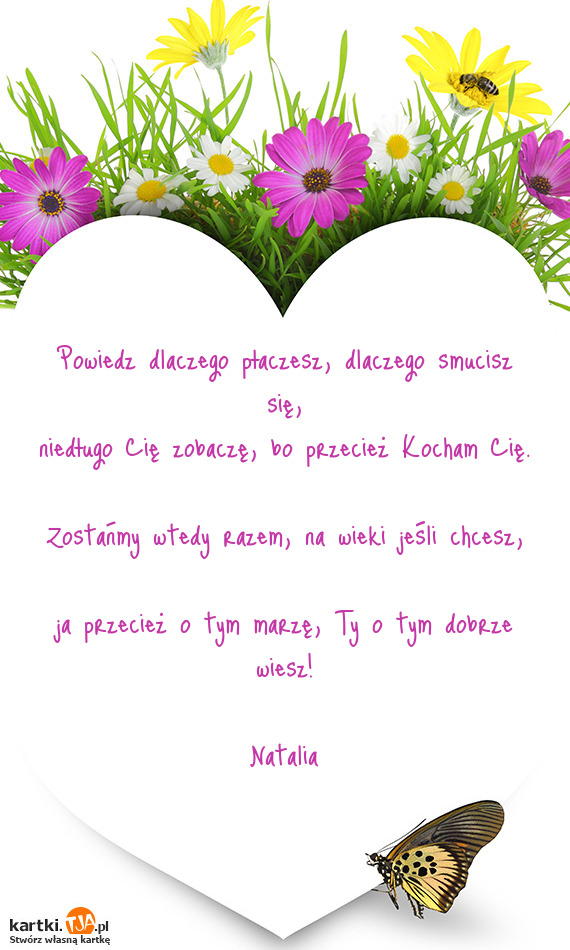 Powiedz dlaczego płaczesz, dlaczego smucisz
się,
niedługo Cię zobaczę, bo przecież Kocham Cię.
Zostańmy wtedy razem, na wieki jeśli chcesz,
ja przecież o tym marzę, Ty o tym dobrze
wiesz!
Natalia
kartki.TJA.pl
Stwórz własną kartkę